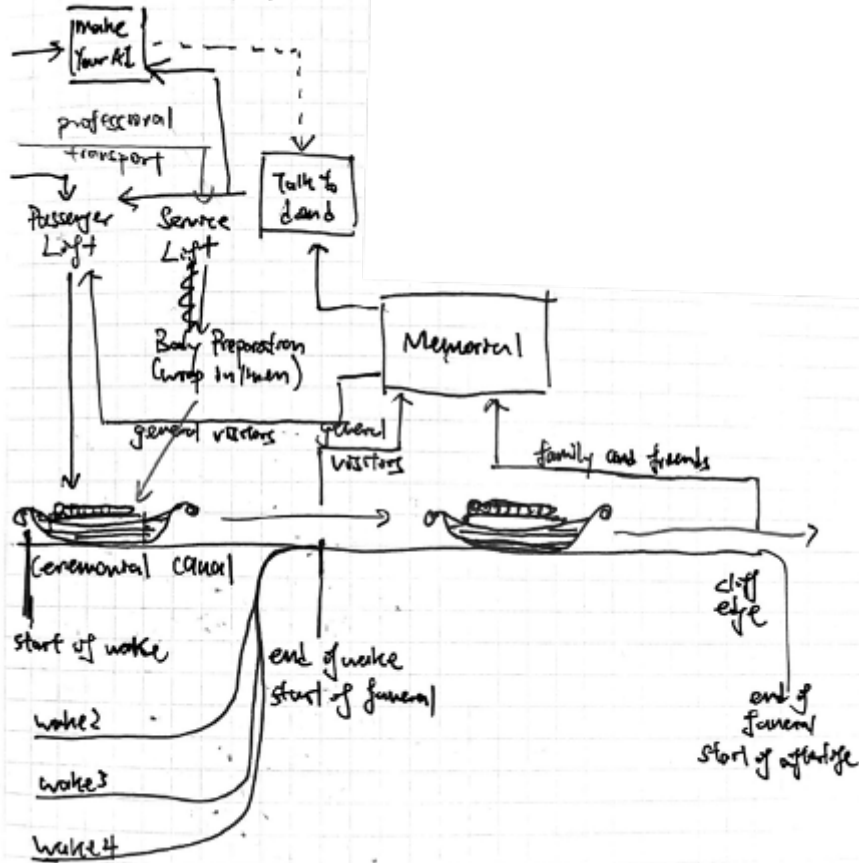 make
Your AI
professional
transport
Talk to
dead
Passenger
Lift
Service
Lift
Body Preparation
(wrap in linen)
Memorial
general visitors
general
visitors
family and friends
Ceremonial canal
cliff
edge
start of wake
end of wake
start of funeral
end of
funeral
start of afterlife
wake2
wake3
wake4